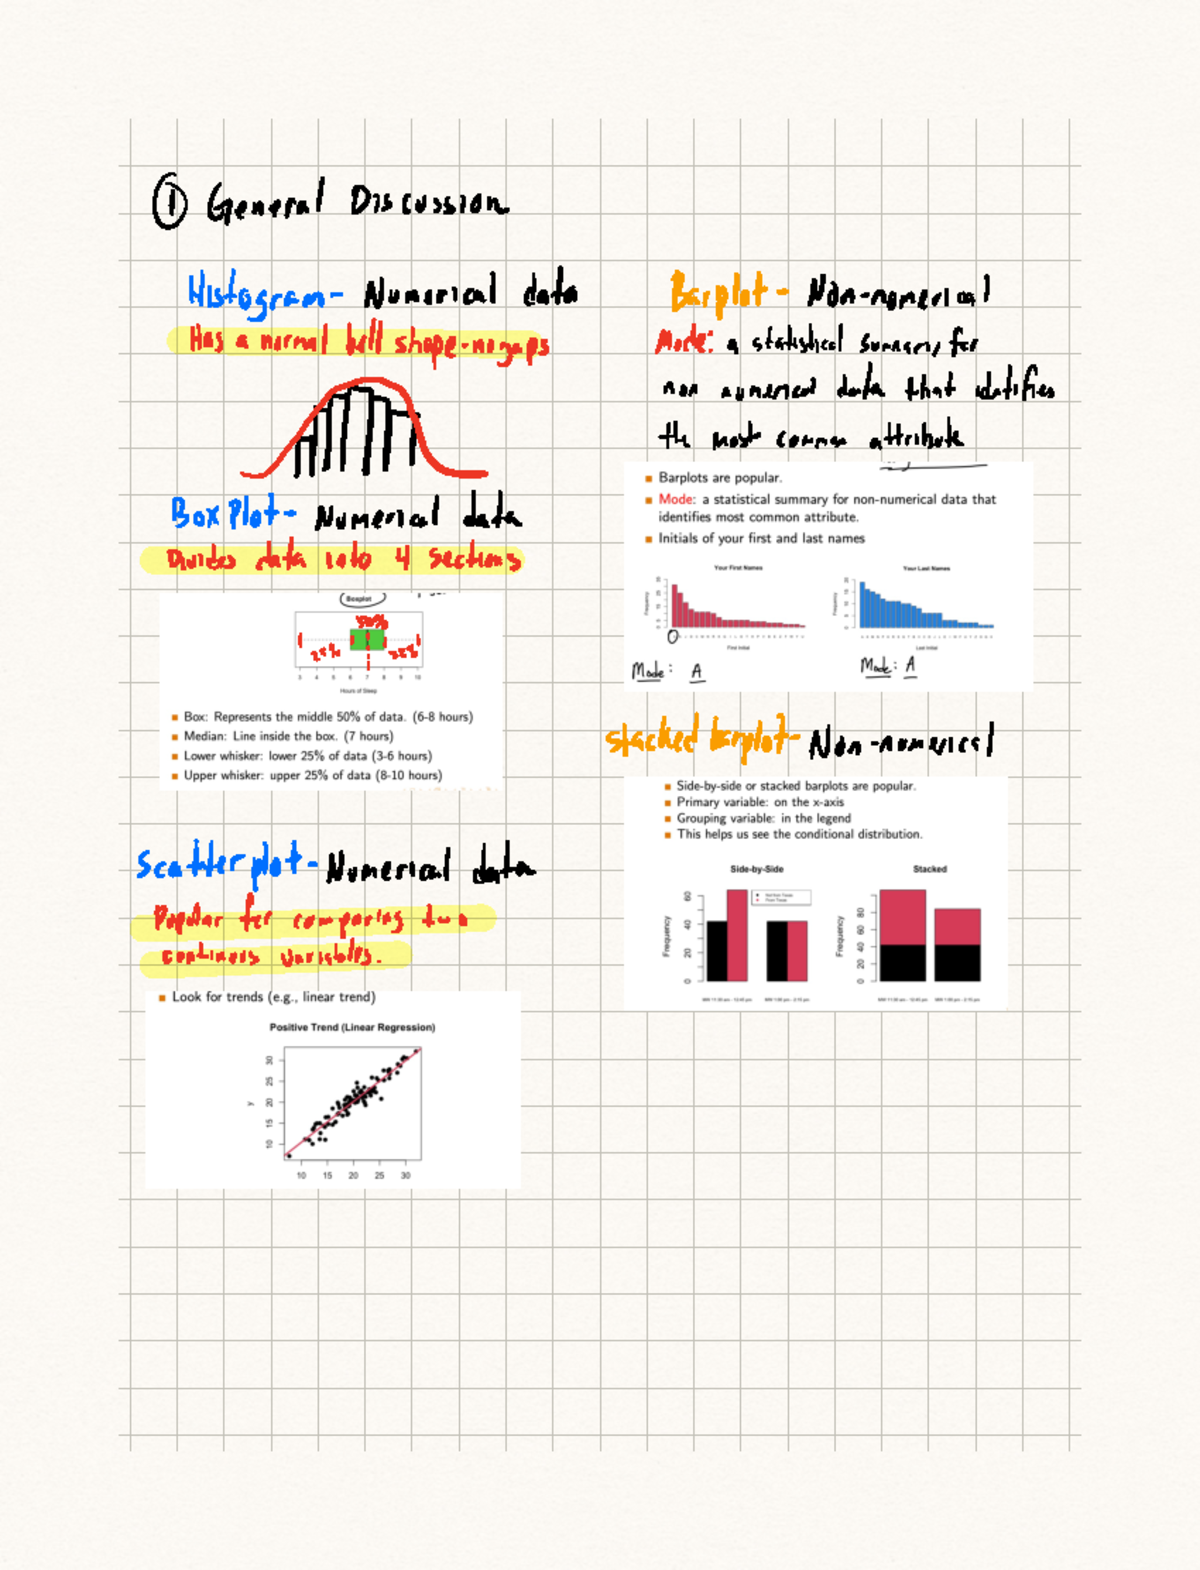 ① General Discussion
Histogram- Numerical data
Has a normal bell shape-no gaps
Box Plot- Numerical data
Divides data into 4 sections
Boxplot
50%
25% 25%
3 4 5 6 7 8 9 10
Hours of Sleep
Box: Represents the middle 50% of data. (6-8 hours)
Median: Line inside the box. (7 hours)
Lower whisker: lower 25% of data (3-6 hours)
Upper whisker: upper 25% of data (8-10 hours)
Scatter plot- Numerical data
Popular for comparing two
continuous variables.
Look for trends (e.g., linear trend)
Positive Trend (Linear Regression)
y
30
25
20
15
10
10 15 20 25 30
Barplot- Non-numerical
Mode: a statistical summary for
non numerical data that identifies
the most common attribute
Barplots are popular.
Mode: a statistical summary for non-numerical data that
identifies most common attribute.
Initials of your first and last names
Your First Names Your Last Names
Frequency Frequency
First Initial Last Initial
Mode: A Mode: A
stacked barplot- Non-numerical
Side-by-side or stacked barplots are popular.
Primary variable: on the x-axis
Grouping variable: in the legend
This helps us see the conditional distribution.
Side-by-Side Stacked
Frequency
60
40
20
0
Not from Texas
From Texas
Frequency
80
60
40
20
0
MW 11:30 am - 12:45 pm MW 1:00 pm - 2:15 pm MW 11:30 am - 12:45 pm MW 1:00 pm - 2:15 pm